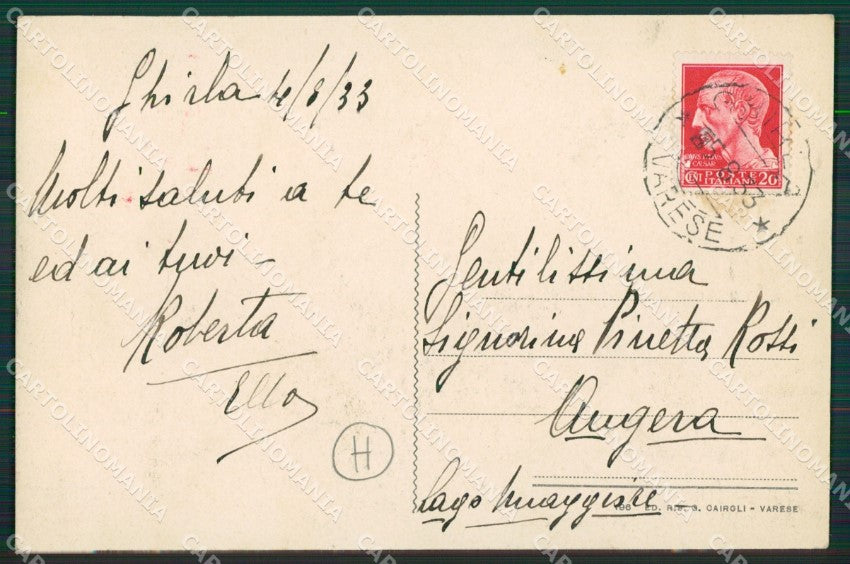 Ghirla 4/8/33
Molti saluti a te
ed ai tuoi -
Roberta
Ella
H
Gentilissima
Signorina Pinetta Rossi
Angera
Lago Maggiore
196 - ED. R.B.G. CAIROLI - VARESE
CENT POSTE 20
ITALIANE
CAESAR
VARESE
CARTOLINOMANIA